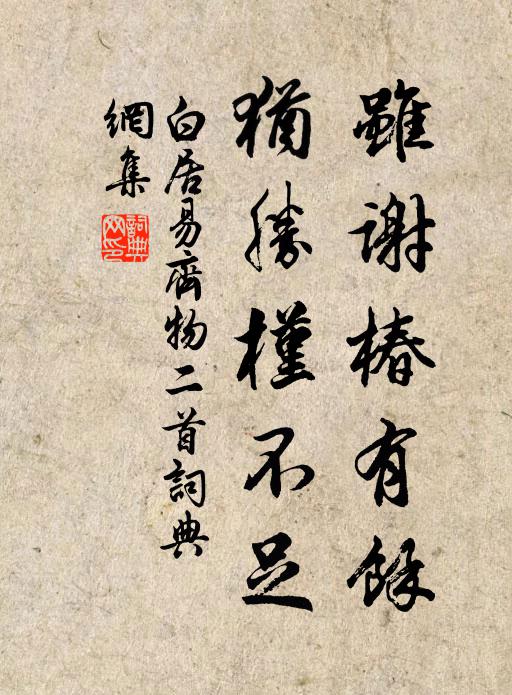 雖謝椿有餘
猶勝槿不足
白居易齊物二首詞典
網集
詞典
网印